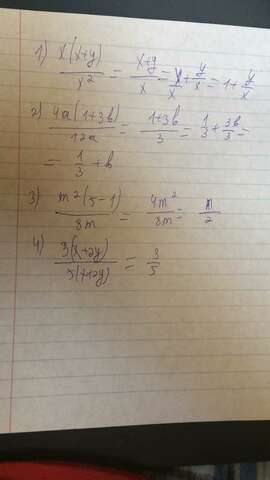 1) x(x+y)/x² = x+y/x = x/x + y/x = 1 + y/x
2) 4a(1+3b)/12a = 1+3b/3 = 1/3 + 3b/3 =
= 1/3 + b
3) m²(5-1)/8m = 4m²/8m = m/2
4) 3(x+2y)/5(x+2y) = 3/5